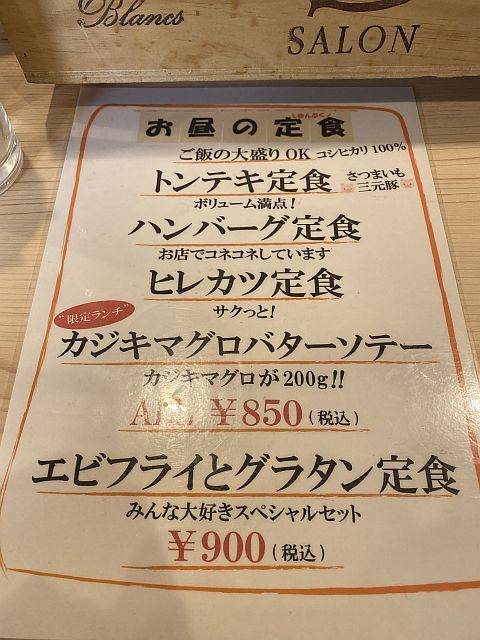 Blancs
SALON
しゅんぷく
お昼の定食
ご飯の大盛りOK コシヒカリ100%
トンテキ定食 さつまいも
三元豚
ボリューム満点!
ハンバーグ定食
お店でコネコネしています
ヒレカツ定食
サクっと!
"限定ランチ"
カジキマグロバターソテー
カジキマグロが200g!!
ALL ¥850(税込)
エビフライとグラタン定食
みんな大好きスペシャルセット
¥900(税込)